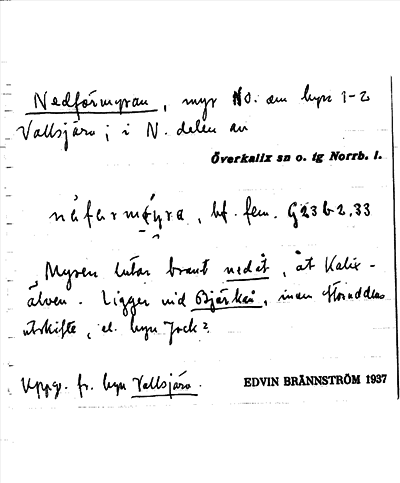 Nedförmyran, myr No. om byn 1-2
Vallsjärv; i N. delen av
Överkalix sn o. tg Norrb. l.
nåfarmyra, bf. fem. G23b2,33
Myren lutar brant nedåt, åt Kalix-
älven. Ligger vid Bjärkån, inom Storuddens
utskifte, el. byn Jock?
Uppg. fr. byn Vallsjärv.
EDVIN BRÄNNSTRÖM 1937